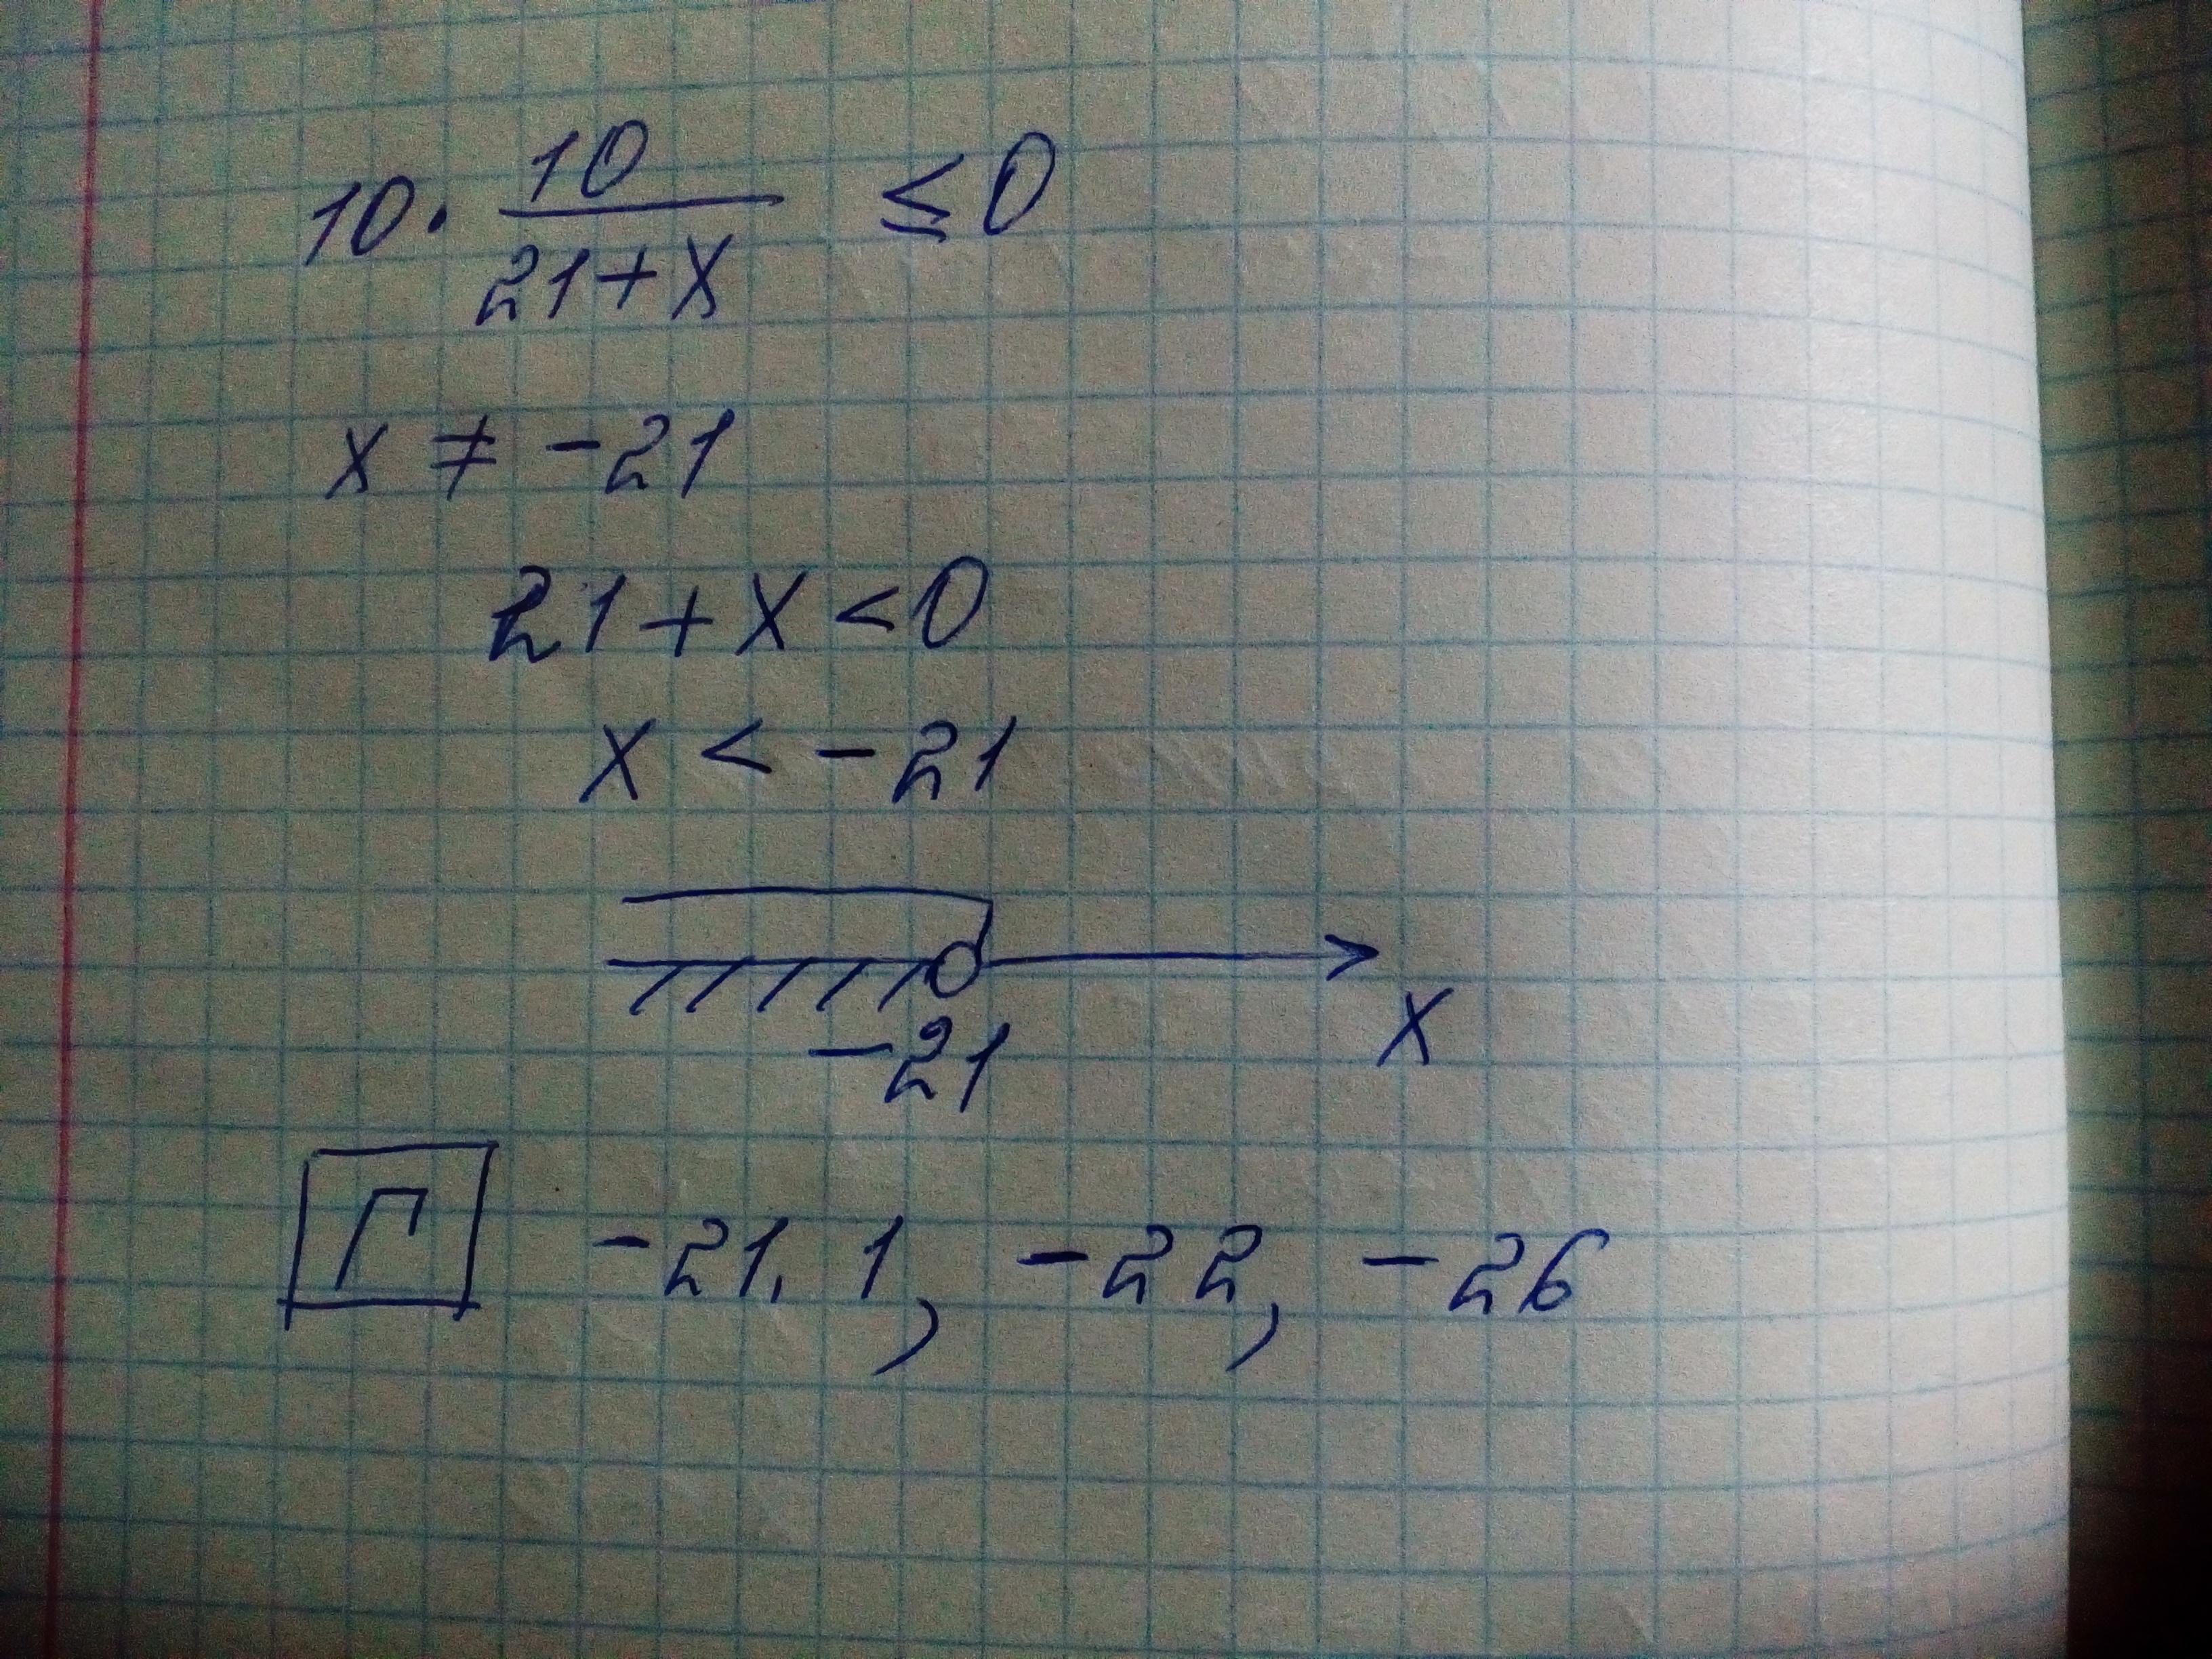 10 · 10/(21+x) ≤ 0
x ≠ -21
21 + x < 0
x < -21
-21 x
Г -21.1, -22, -26